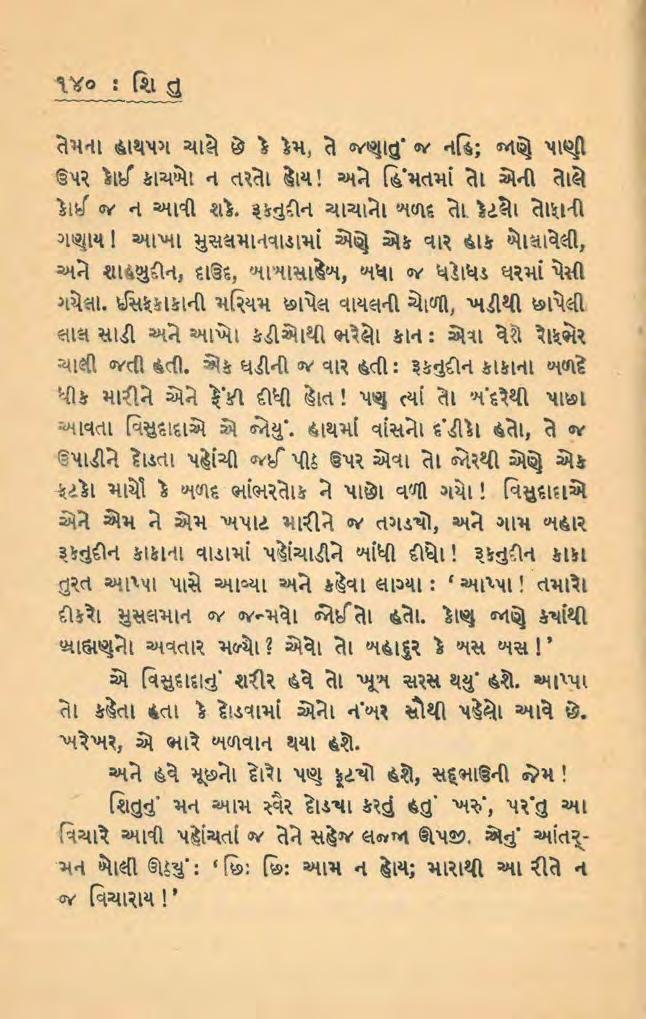 ૧૪૦ : શિ તુ
તેમના હાથપગ ચાલે છે કે કેમ, તે જણાતું જ નહિ; જાણે પાણી
ઉપર કોઈ કાચબો ન તરતો હોય! અને હિંમતમાં તો એની તોલે
કોઈ જ ન આવી શકે. રૂકનુદીન ચાચાનો બળદ તો કેટલો તોફાની
ગણાય! આખા મુસલમાનવાડામાં એણે એક વાર હાક બોલાવેલી,
અને શાહબુદીન, દાઉદ, બાબાસાહેબ, બધા જ ધડોધડ ઘરમાં પેસી
ગયેલા. ઈસફકાકાની મરિયમ છાપેલ વાયલની ચોળી, ખડીથી છાપેલી
લાલ સાડી અને આખો કડીઓથી ભરેલો કાન : એવા વેશે રોફભેર
ચાલી જતી હતી. એક ઘડીની જ વાર હતી : રૂકનુદીન કાકાના બળદે
ધીક મારીને એને ફેંકી દીધી હોત! પણ ત્યાં તો બંદરેથી પાછા
આવતા વિસુદાદાએ એ જોયું. હાથમાં વાંસનો દંડીકો હતો, તે જ
ઉપાડીને દોડતા પહોંચી જઈ પીઠ ઉપર એવા તો જોરથી એણે એક
ફટકો માર્યો કે બળદ ભાંભરતોક ને પાછો વળી ગયો! વિસુદાદાએ
એને એમ ને એમ ખપાટ મારીને જ તગડ્યો, અને ગામ બહાર
રૂકનુદીન કાકાના વાડામાં પહોંચાડીને બાંધી દીધો! રૂકનુદીન કાકા
તુરત આપ્પા પાસે આવ્યા અને કહેવા લાગ્યા : ‘આપ્પા! તમારો
દીકરો મુસલમાન જ જન્મવો જોઈતો હતો. કોણ જાણે કયાંથી
બ્રાહ્મણનો અવતાર મળ્યો? એવો તો બહાદુર કે બસ બસ!’
એ વિસુદાદાનું શરીર હવે તો ખૂબ સરસ થયું હશે. આપ્પા
તો કહેતા હતા કે દોડવામાં એનો નંબર સૌથી પહેલો આવે છે.
ખરેખર, એ ભારે બળવાન થયા હશે.
અને હવે મૂછનો દોરો પણ ફૂટ્યો હશે, સદ્ભાઉની જેમ!
શિતુનું મન આમ સ્વૈર દોડ્યા કરતું હતું ખરું, પરંતુ આ
વિચારે આવી પહોંચતાં જ તેને સહેજ લજ્જા ઊપજી. એનું આંતર્-
મન બોલી ઊઠ્યું : ‘છિઃ છિઃ આમ ન હોય; મારાથી આ રીતે ન
જ વિચારાય!’